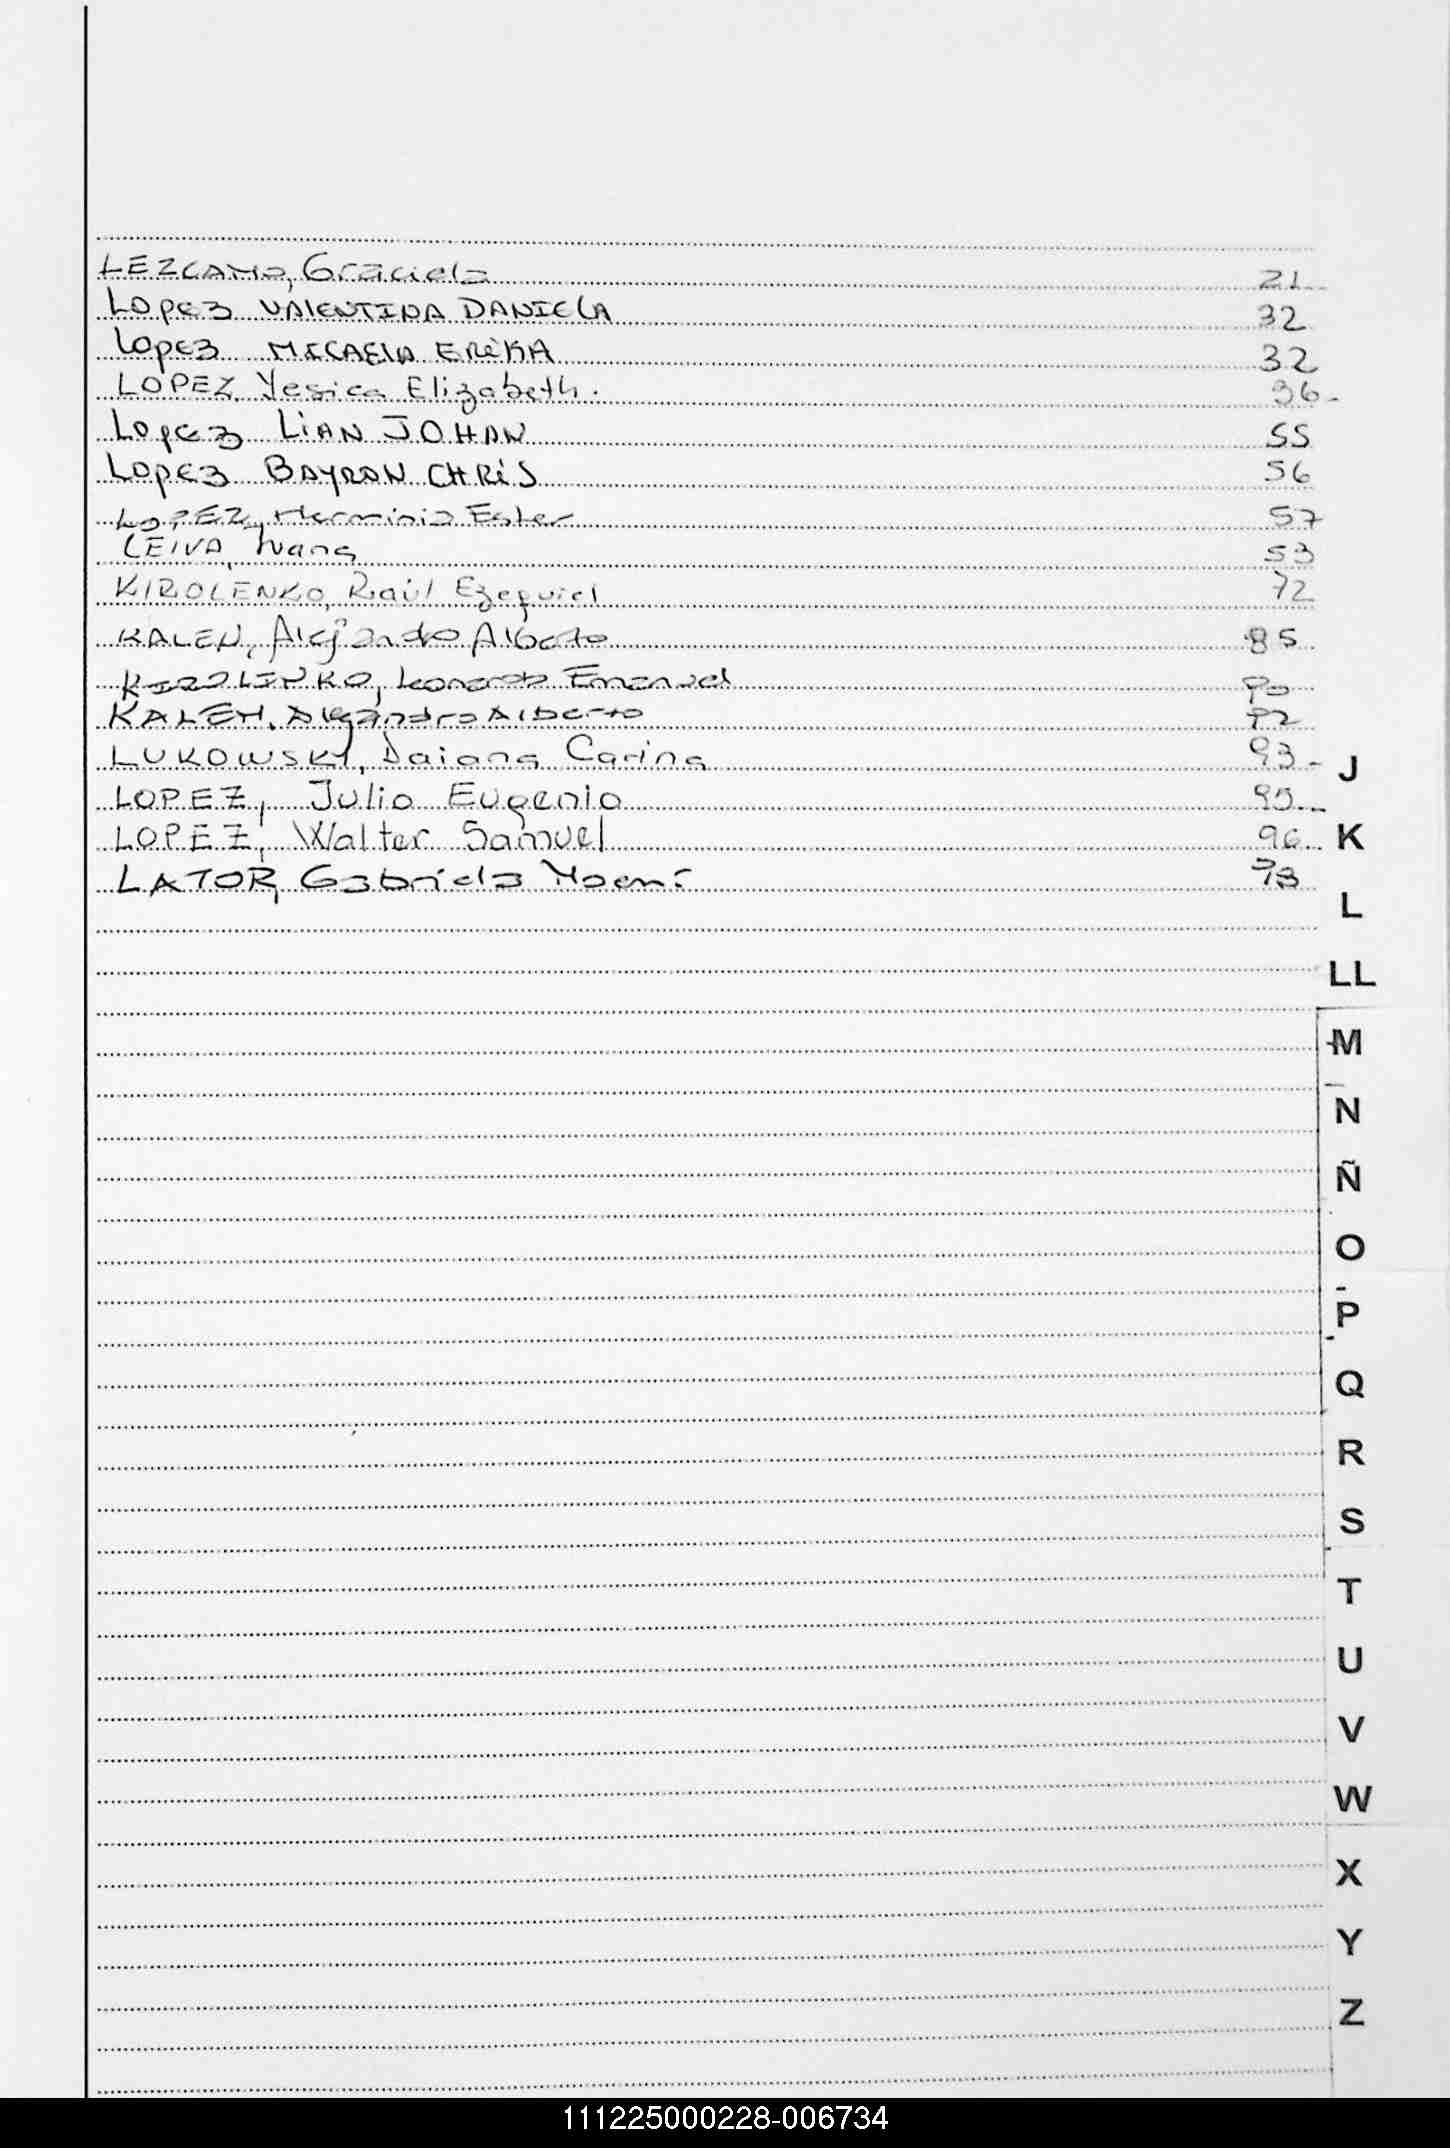 LEZCANO, Graciela 21
LOPEZ VALENTINA DANIELA 32
LOPEZ MICAELA ERiKA 32
LOPEZ, Yesica Elizabeth. 36-
LOPEZ LiAN JOHAN 55
LOPEZ BAYRON CHRiS 56
LOPEZ, Herminia Ester 57
LEIVA, Ivana 53
KIROLENKO, Raúl Ezequiel 72
KALEN, Alejandro Alberto 85
KIROLINKO, Leonardo Emanuel 90
KALEN, Alejandro Alberto 92
LUKOWSKI, Daiana Carina 93-
LOPEZ, Julio Eugenio 95-
LOPEZ, Walter Samuel 96-
LATOR, Gabriela Noemí 73
J
K
L
LL
M
N
Ñ
O
P
Q
R
S
T
U
V
W
X
Y
Z
111225000228-006734